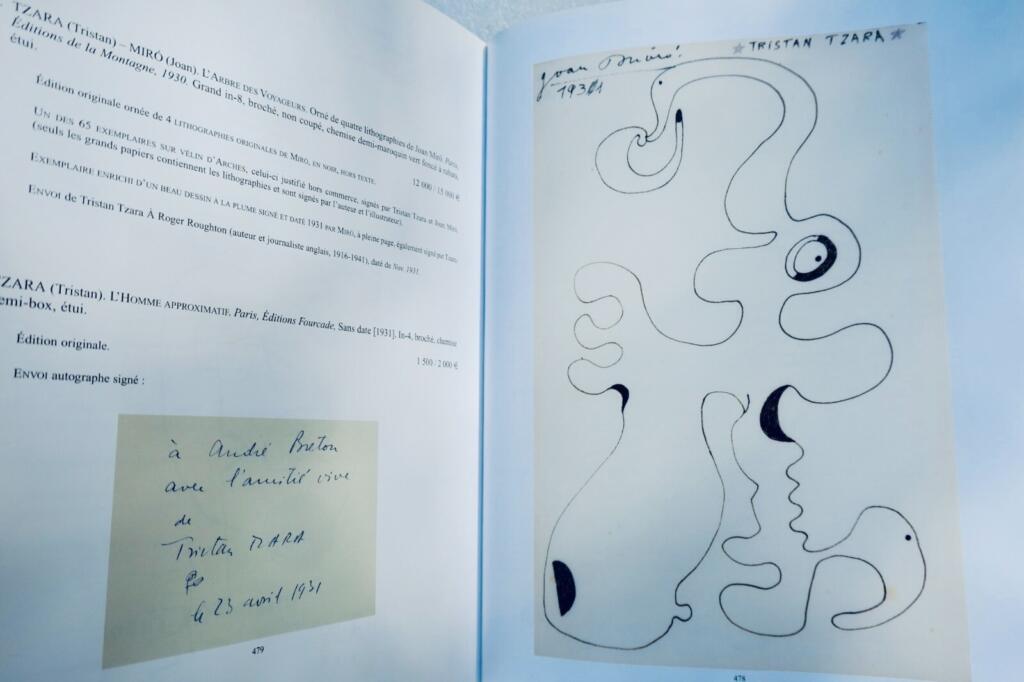 TZARA (Tristan) – MIRÓ (Joan). L'ARBRE DES VOYAGEURS. Orné de quatre lithographies de Joan Miró. Paris,
Éditions de la Montagne, 1930. Grand in-8, broché, non coupé, chemise demi-maroquin vert foncé à rabats,
étui.
12 000 / 15 000 €
Édition originale ornée de 4 LITHOGRAPHIES ORIGINALES DE MIRÓ, EN NOIR, HORS TEXTE.
UN DES 65 EXEMPLAIRES SUR VÉLIN D'ARCHES, celui-ci justifié hors commerce, signés par Tristan Tzara et Joan Miró,
(seuls les grands papiers contiennent les lithographies et sont signés par l'auteur et l'illustrateur).
EXEMPLAIRE ENRICHI D'UN BEAU DESSIN À LA PLUME SIGNÉ ET DATÉ 1931 PAR MIRÓ, à pleine page, également signé par Tzara.
ENVOI de Tristan Tzara À Roger Roughton (auteur et journaliste anglais, 1916-1941), daté de Nov. 1931.
ZARA (Tristan). L'HOMME APPROXIMATIF. Paris, Éditions Fourcade, Sans date [1931]. In-4, broché, chemise
emi-box, étui.
1 500 / 2 000 €
Édition originale.
ENVOI autographe signé :
à André Breton
avec l'amitié vive
de
Tristan TZARA
le 23 avril 1931
479
Joan Miró.
1931
TRISTAN TZARA
478